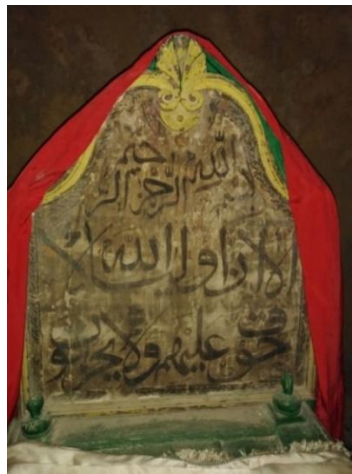 بسم الله الرحمن الرحيم
الا ان اولياء الله لا
خوف عليهم ولا هم يحزنون